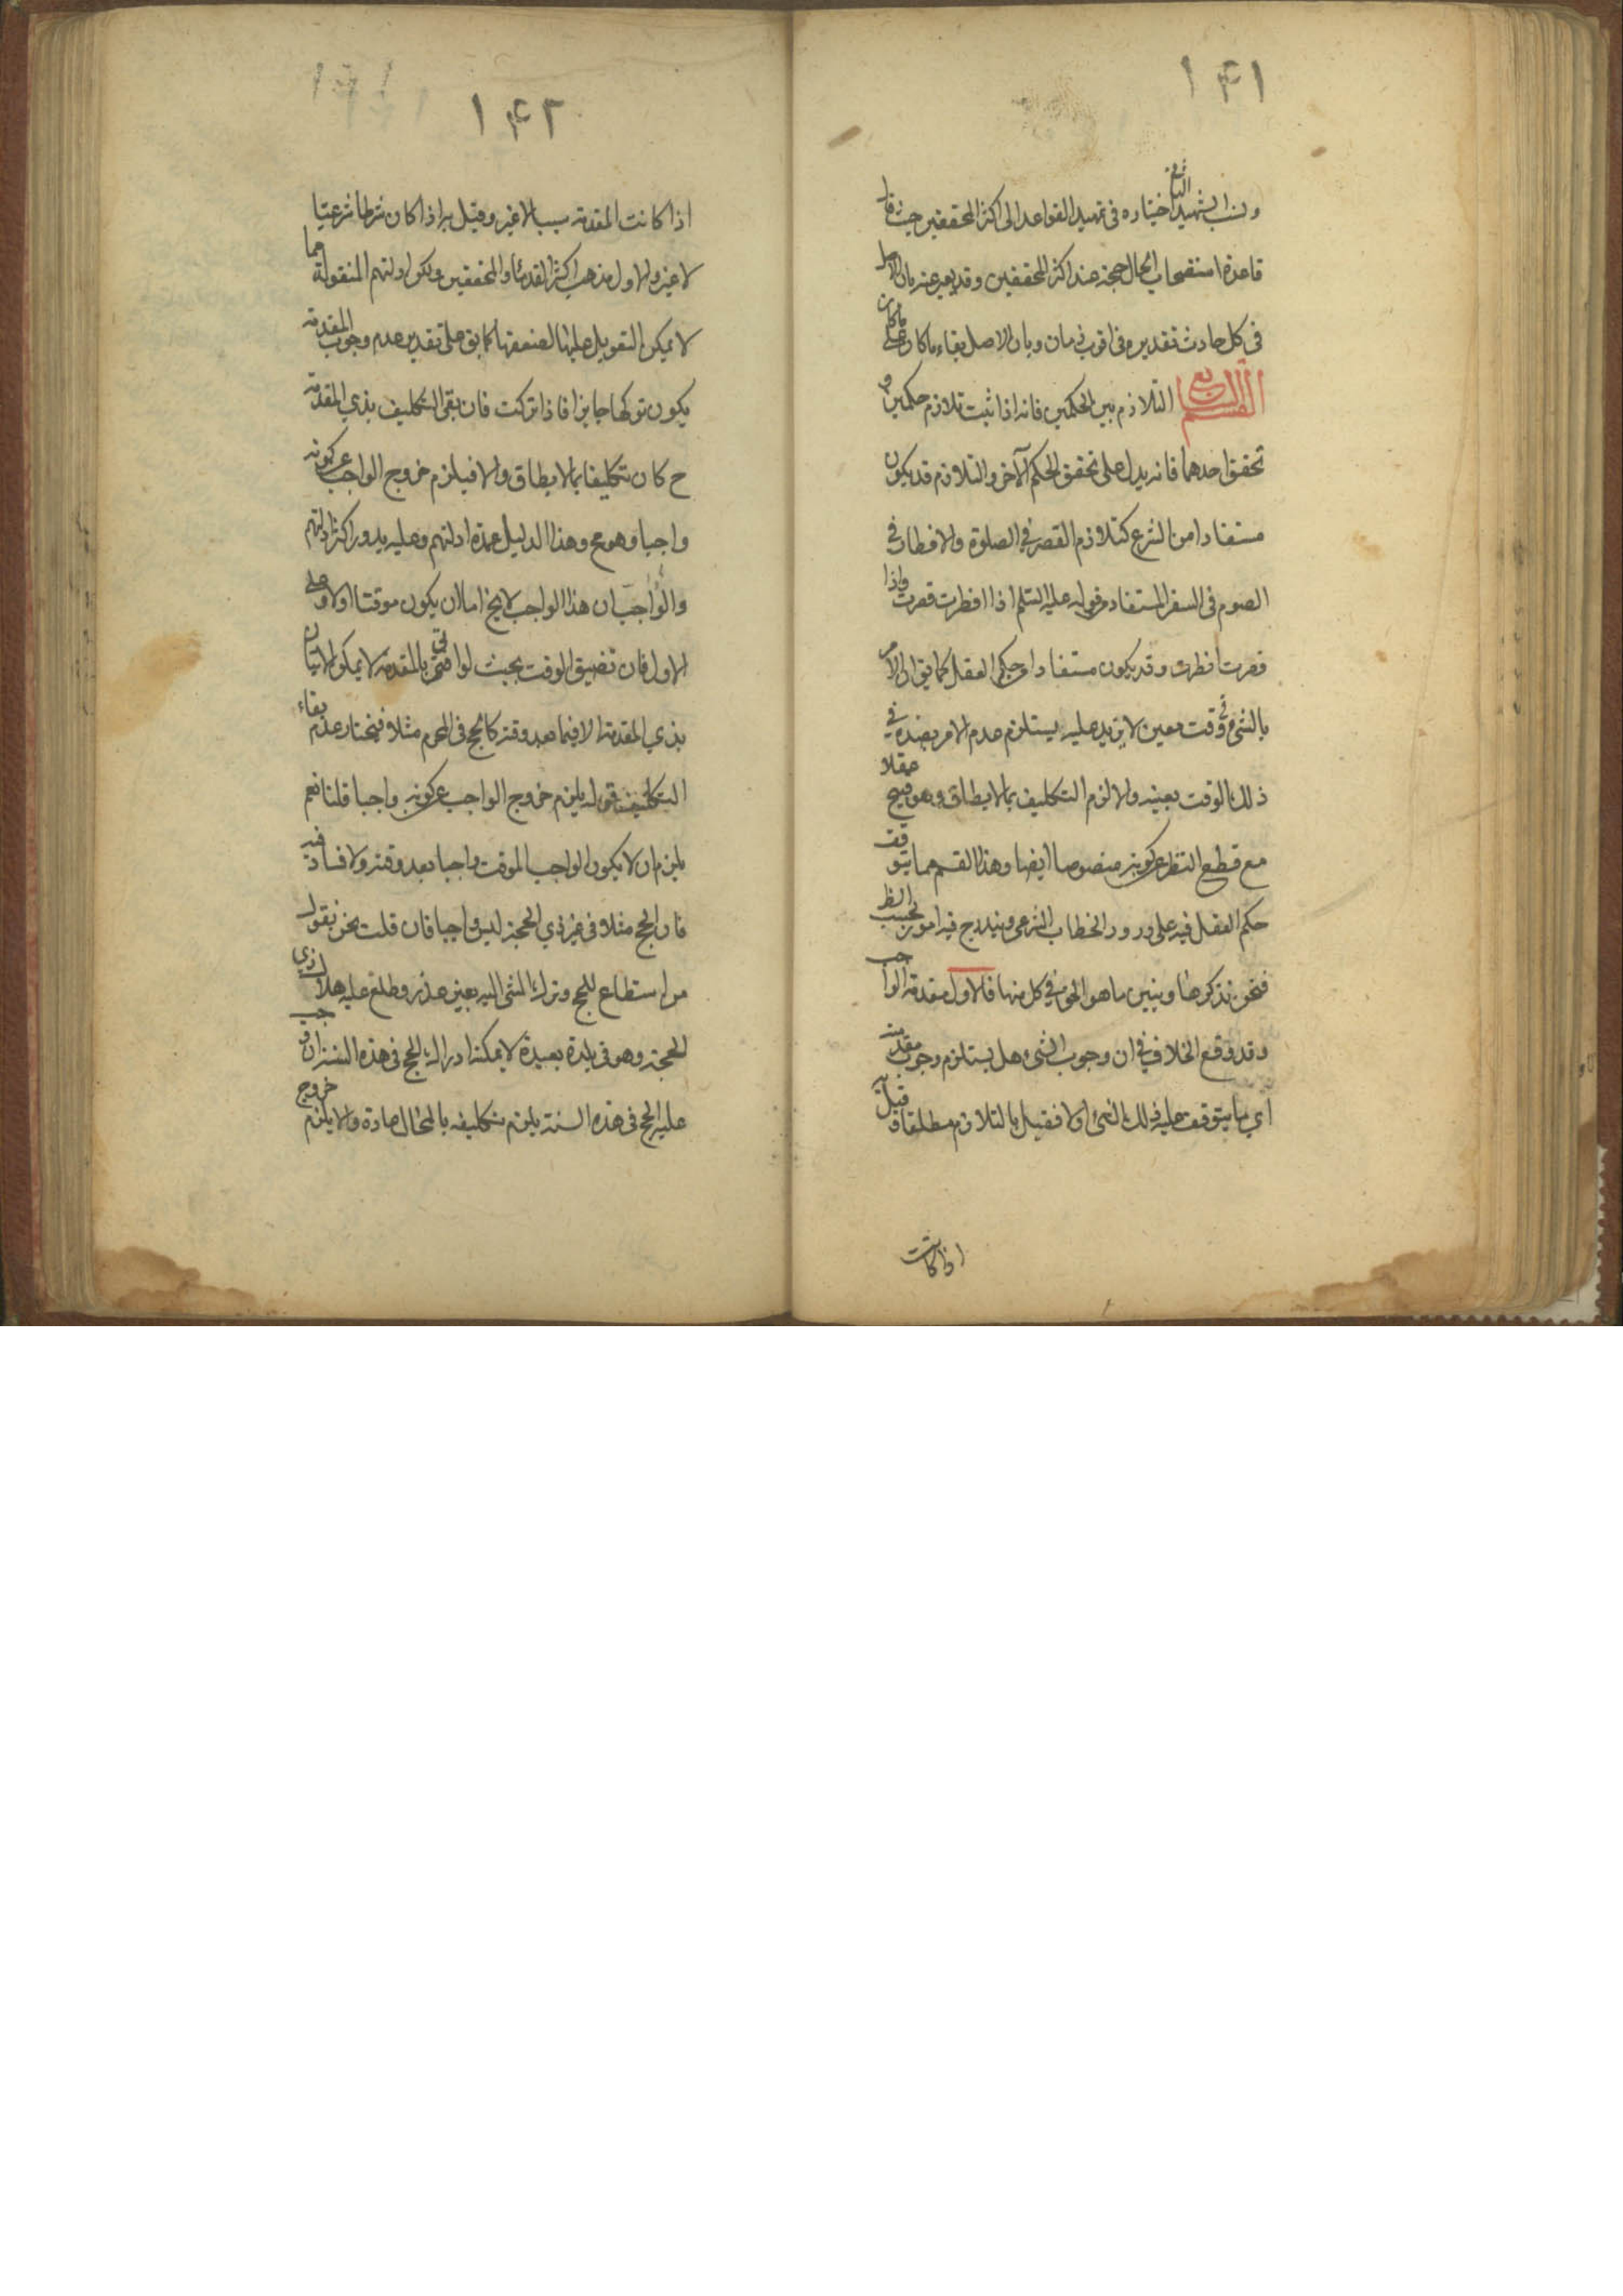 ١٤١
ونسب الشهيد الثاني اختياره في تمهيد القواعد الى اكثر المحققين حيث قال
قاعدة استصحاب الحال حجة عند اكثر المحققين وقد يعبر عنه بان الاصل
في كل حادث تقديره في اقرب زمان وبان الاصل بقاء ما كان على ما كان
القسم الرابع التلازم بين الحكمين فانه اذا ثبت تلازم حكمين و
تحقق احدهما فانه يدل على تحقق الحكم الآخر والتلازم قد يكون
مستفادا من الشرع كتلازم القصر في الصلوة والافطار في
الصوم في السفر المستفاد من قوله عليه السلم اذا افطرت قصرت واذا
قصرت افطرت وقد يكون مستفادا من حكم العقل كما يق ان الامر
بالشئ في وقت معين لا يزيد عليه يستلزم عدم الامر بضده في
ذلك الوقت بعينه والا لزم التكليف بما لا يطاق وهو قبيح عقلا
مع قطع النظر عن كونه منصوصا ايضا وهذا القسم مما يتوقف
حكم العقل فيه على ورود الخطاب الشرعي ويندرج فيه امور بحسب الظ
فنحن نذكرها ونبين ما هو الحق في كل منها فالاول مقدمة الواجب
وقد وقع الخلاف في ان وجوب الشئ هل يستلزم وجوب مقدمته
اي ما يتوقف عليه ذلك الشئ او لا فقيل بالتلازم مطلقا وقيل به
اذا كانت
١٤٢
اذا كانت المقدمة سببا لا غير وقيل به اذا كان شرطا شرعيا
لا غيره والاول مذهب اكثر القدماء والمحققين ولكن ادلتهم المنقولة مما
لا يمكن التعويل عليها لضعفها كما يق على تقدير عدم وجوب المقدمة
يكون تركها جايزا فاذا تركت فان بقى التكليف بذي المقدمة
ح كان تكليفا بما لا يطاق والا فيلزم خروج الواجب عن كونه
واجبا وهو مح وهذا الدليل عمدة ادلتهم وعليه يدور اكثر ادلتهم
والجواب ان هذا الواجب لا يخ اما ان يكون موقتا او لا وعلى
الاول فان تضيق الوقت بحيث لو اتى بالمقدمة لا يمكن الاتيان
بذي المقدمة الا فيما بعد وقته كالحج في المحرم مثلا فنختار عدم بقاء
التكليف قوله يلزم خروج الواجب عن كونه واجبا قلنا نعم
يلزم ان لا يكون الواجب الموقت واجبا بعد وقته ولا فساد فيه
فان الحج مثلا في غير ذي الحجة ليس واجبا فان قلت نحن نقول
من استطاع للحج وترك المشي اليه بغير عذر وطلع عليه هلال ذي
الحجة وهو في بلدة بعيدة لا يمكنه ادراك الحج في هذه السنة ان وجب
عليه الحج في هذه السنة يلزم تكليفه بالمحال عادة والا يلزم خروج